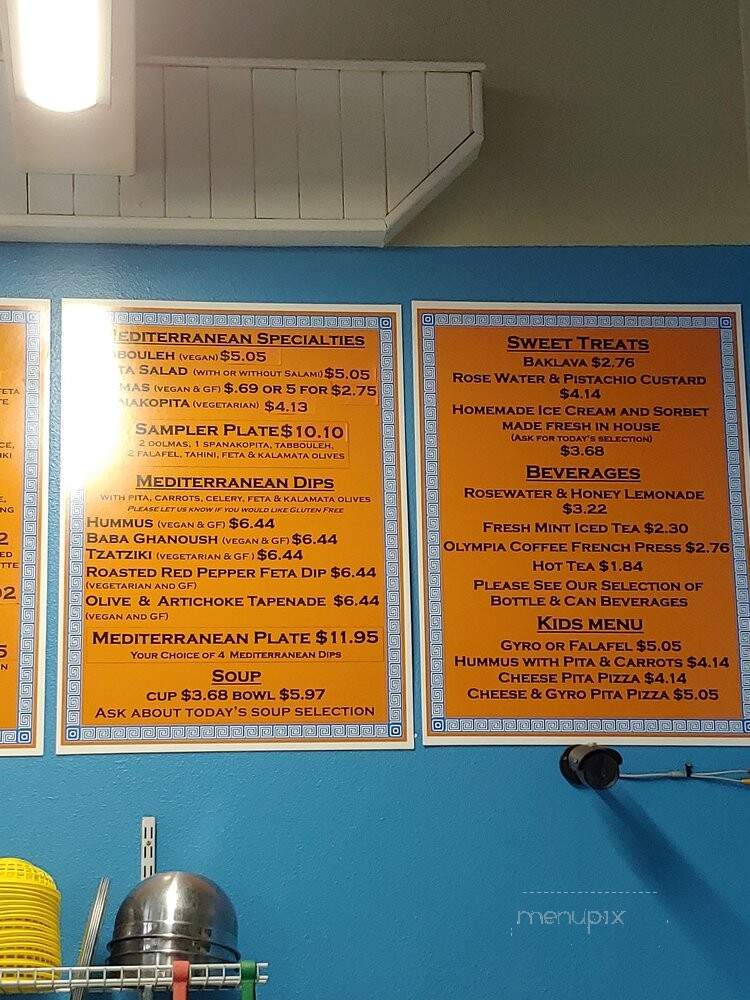 FETA
TE
CE,
IKI
E,
NG
2
ED
TTE
02
5
N
EDITERRANEAN SPECIALTIES
BOULEH (VEGAN) $5.05
TA SALAD (WITH OR WITHOUT SALAMI) $5.05
MAS (VEGAN & GF) $.69 OR 5 FOR $2.75
NAKOPITA (VEGETARIAN) $4.13
SAMPLER PLATE $10.10
2 DOLMAS, 1 SPANAKOPITA, TABBOULEH,
2 FALAFEL, TAHINI, FETA & KALAMATA OLIVES
MEDITERRANEAN DIPS
WITH PITA, CARROTS, CELERY, FETA & KALAMATA OLIVES
PLEASE LET US KNOW IF YOU WOULD LIKE GLUTEN FREE
HUMMUS (VEGAN & GF) $6.44
BABA GHANOUSH (VEGAN & GF) $6.44
TZATZIKI (VEGETARIAN & GF ) $6.44
ROASTED RED PEPPER FETA DIP $6.44
(VEGETARIAN AND GF)
OLIVE & ARTICHOKE TAPENADE $6.44
(VEGAN AND GF)
MEDITERRANEAN PLATE $11.95
YOUR CHOICE OF 4 MEDITERRANEAN DIPS
SOUP
CUP $3.68 BOWL $5.97
ASK ABOUT TODAY'S SOUP SELECTION
SWEET TREATS
BAKLAVA $2.76
ROSE WATER & PISTACHIO CUSTARD
$4.14
HOMEMADE ICE CREAM AND SORBET
MADE FRESH IN HOUSE
(ASK FOR TODAY'S SELECTION)
$3.68
BEVERAGES
ROSEWATER & HONEY LEMONADE
$3.22
FRESH MINT ICED TEA $2.30
OLYMPIA COFFEE FRENCH PRESS $2.76
HOT TEA $1.84
PLEASE SEE OUR SELECTION OF
BOTTLE & CAN BEVERAGES
KIDS MENU
GYRO OR FALAFEL $5.05
HUMMUS WITH PITA & CARROTS $4.14
CHEESE PITA PIZZA $4.14
CHEESE & GYRO PITA PIZZA $5.05
menupix